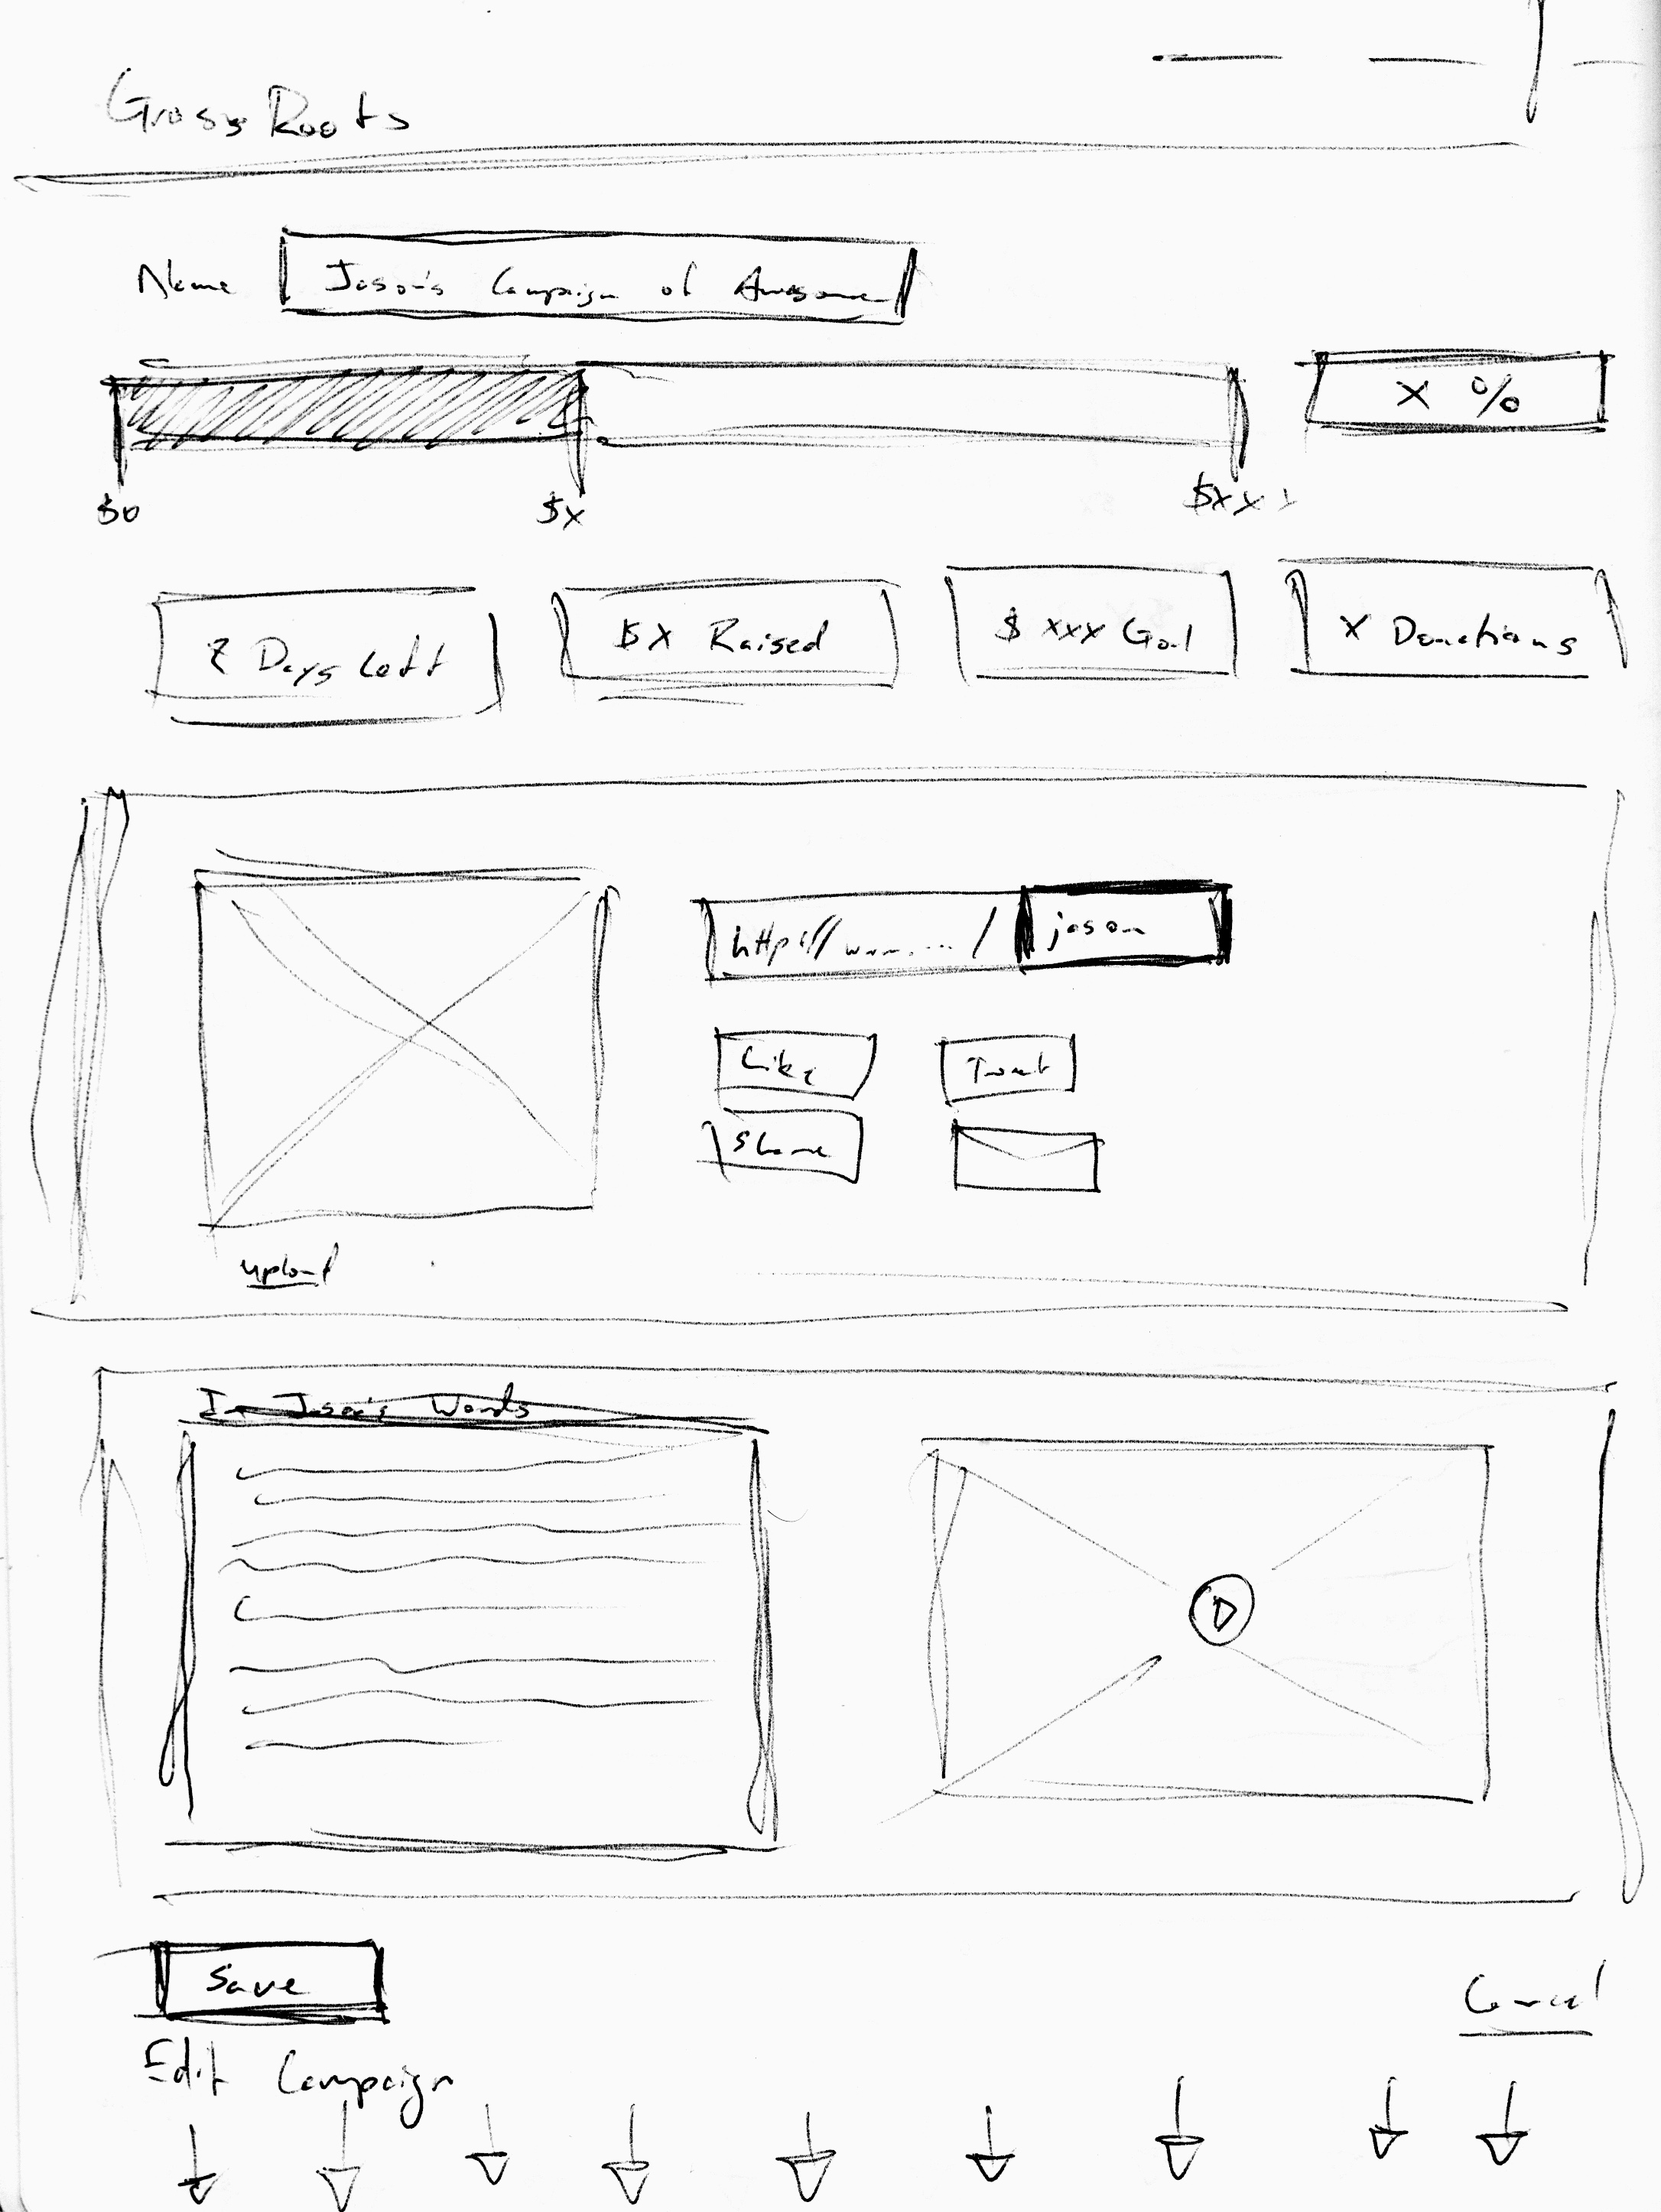 GrassRoots
Name Jason's Campaign of Awesome
X %
$0 $X $XXX
Days Left $X Raised $ XXX Goal X Donations
http://www.... / jason
Like Tweet
Share
upload
In Jason's Words
Save
Cancel
Edit Campaign